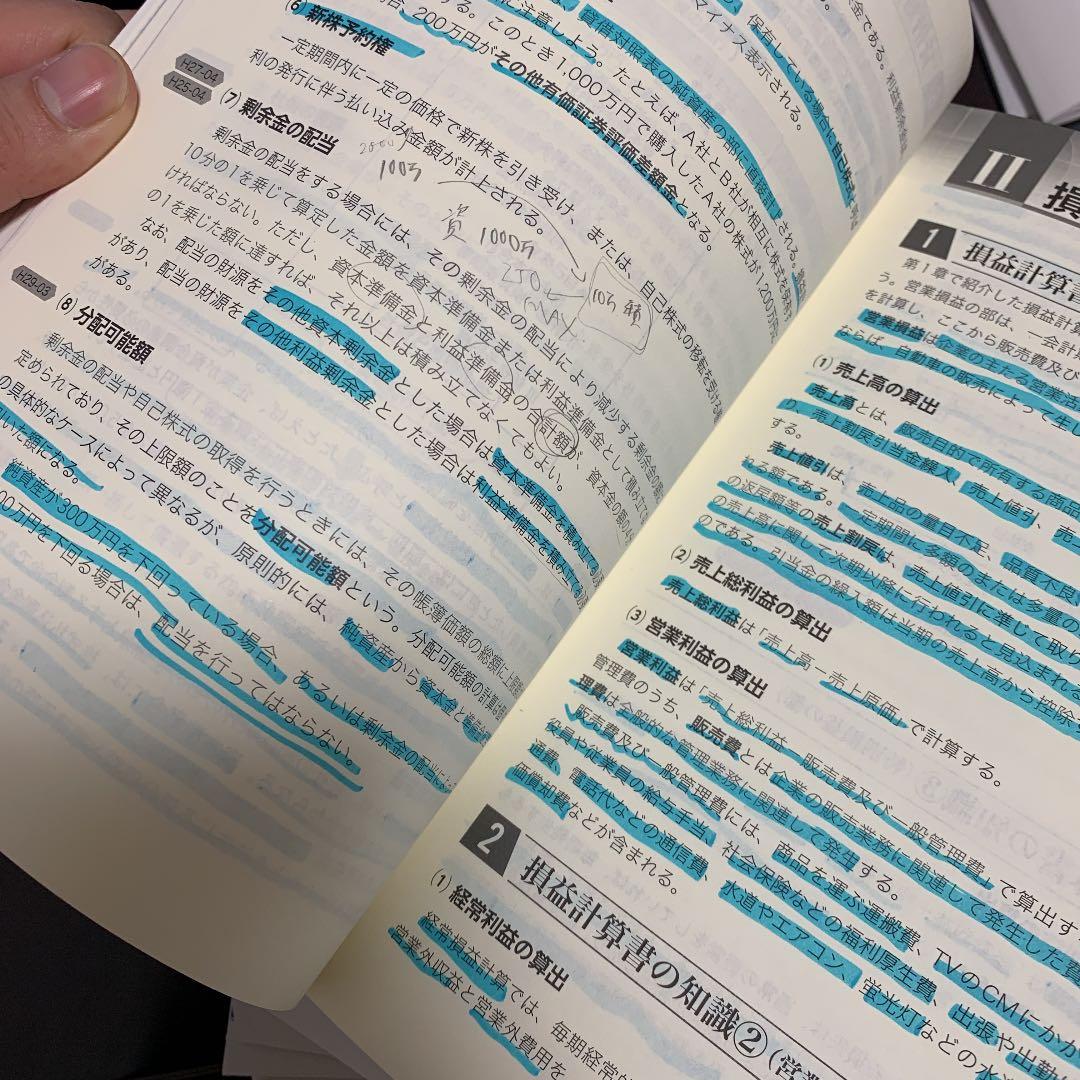 保有している場合に自己株式
マイナス表示される。
貸借対照表の純資産の部に直接計上される。
に注意しよう。たとえば、A社とB社が相互に株式を
する。このとき1,000万円で購入したA社の株式が1,200万円
合、200万円がその他有価証券評価差額金となる。
(6) 新株予約権
一定期間内に一定の価格で新株を引き受け、または、自己株式の移転を受ける
利の発行に伴う払い込み金額が計上される。
H27-04
H25-04
(7) 剰余金の配当
100万
資 1000万
10万 積
剰余金の配当をする場合には、その剰余金の配当により減少する剰余金の額
10分の1を乗じて算定した金額を資本準備金または利益準備金として積み立て
ければならない。ただし、資本準備金と利益準備金の合計額が、資本金の額の4分
の1を乗じた額に達すれば、それ以上は積み立てなくてもよい。
なお、配当の財源をその他資本剰余金とした場合は資本準備金を積み立
があり、配当の財源をその他利益剰余金とした場合は利益準備金を積み立
がある。
H29-03
(8) 分配可能額
剰余金の配当や自己株式の取得を行うときには、その帳簿価額の総額に上限
定められており、その上限額のことを分配可能額という。分配可能額の計算
の具体的なケースによって異なるが、原則的には、純資産から資本金と準備
引いた額になる。
純資産が300万円を下回っている場合、あるいは剰余金の配当に
00万円を下回る場合は、配当を行ってはならない。
II 損
1 損益計算書
第1章で紹介した損益計算
う。営業損益の部は、一会計
を計算し、ここから販売費及び
営業損益は企業の主たる営業活
ならば、自動車の販売によって生じ
(1) 売上高の算出
売上高とは、販売目的で所有する商品
り、売上割戻引当金繰入、売上値引、売
する。
売上値引は、売上品の量目不足、品質不良
れる額である。一定期間に多額のまたは多量の
の返戻額等の売上割戻は、売上値引に準じて取り
の売上高に関して次期以降に行われると見込まれる
のである。引当金の繰入額は当期の売上高から控除す
(2) 売上総利益の算出
売上総利益は「売上高－売上原価」で計算する。
(3) 営業利益の算出
営業利益は「売上総利益－販売費及び一般管理費」で算出す
管理費のうち、販売費とは企業の販売業務に関連して発生した費
理費は全般的な管理業務に関連して発生する。
販売費及び一般管理費には、商品を運ぶ運搬費、TVのCMにかか
役員や従業員の給与手当、社会保険などの福利厚生費、出張や出勤
通費、電話代などの通信費、水道やエアコン、蛍光灯などの水
価償却費などが含まれる。
2 損益計算書の知識② (営
(1) 経常利益の算出
経常損益計算では、毎期経常的
営業外収益と営業外費用を